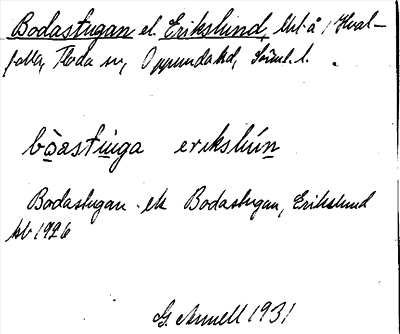 Bodastugan el. Erikslund, lht å Hval-
falla, Floda sn, Oppunda hd, Söml. l.
bòastu̱ga erikslún̲
Bodastugan ek Bodastugan, Erikslund
kb 1926
G. Annell 1931